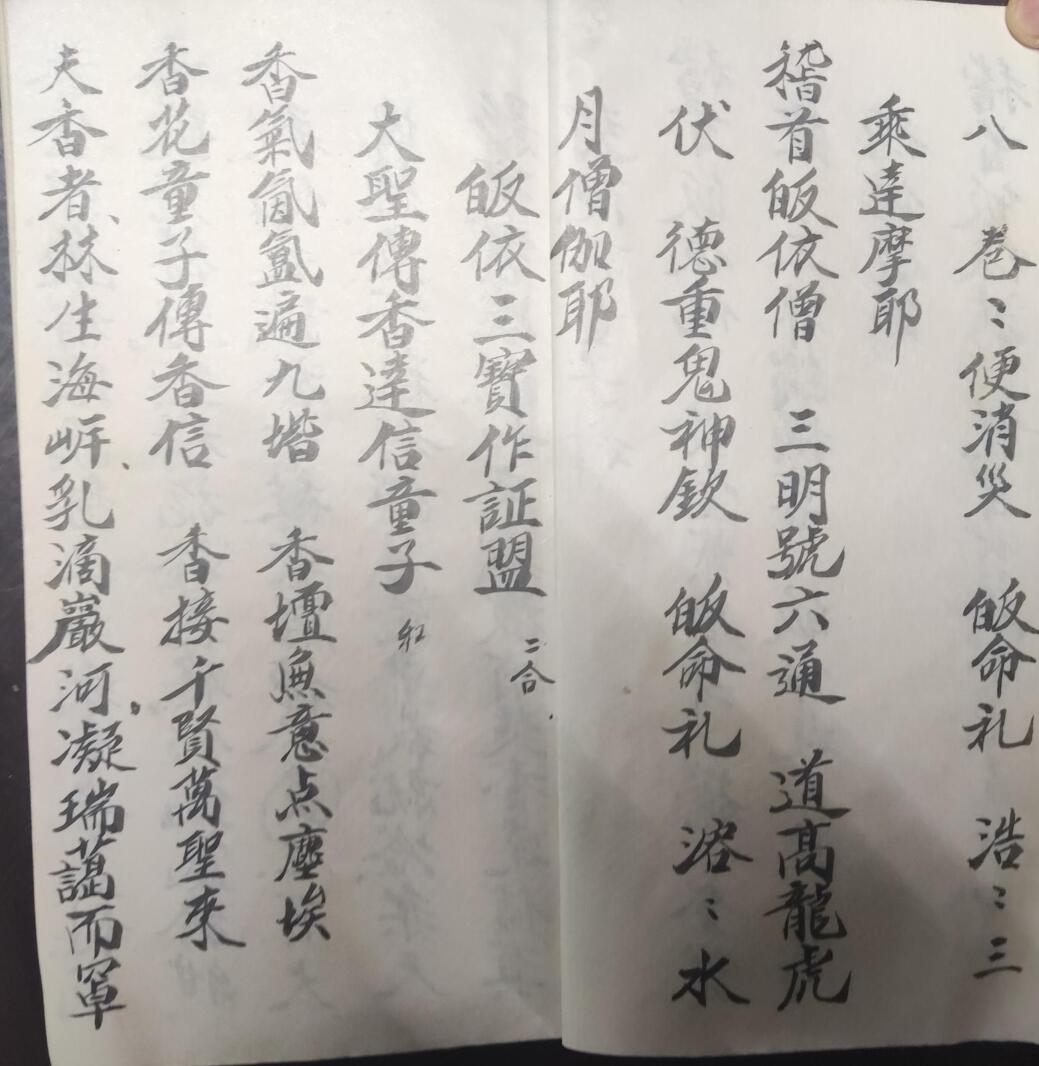 八 卷〻便消災 皈命礼 浩〻三
乘達摩耶
稽首皈依僧 三明號六通 道高龍虎
伏 德重鬼神欽 皈命礼 溶〻水
月僧伽耶
皈依三寶作証盟 二合
大聖傳香達信童子 和
香氣氤氳遍九堦 香壇無意点塵埃
香花童子傳香信 香接千賢萬聖來
夫香者、林生海岍、乳滴巖河、凝瑞藹而罩